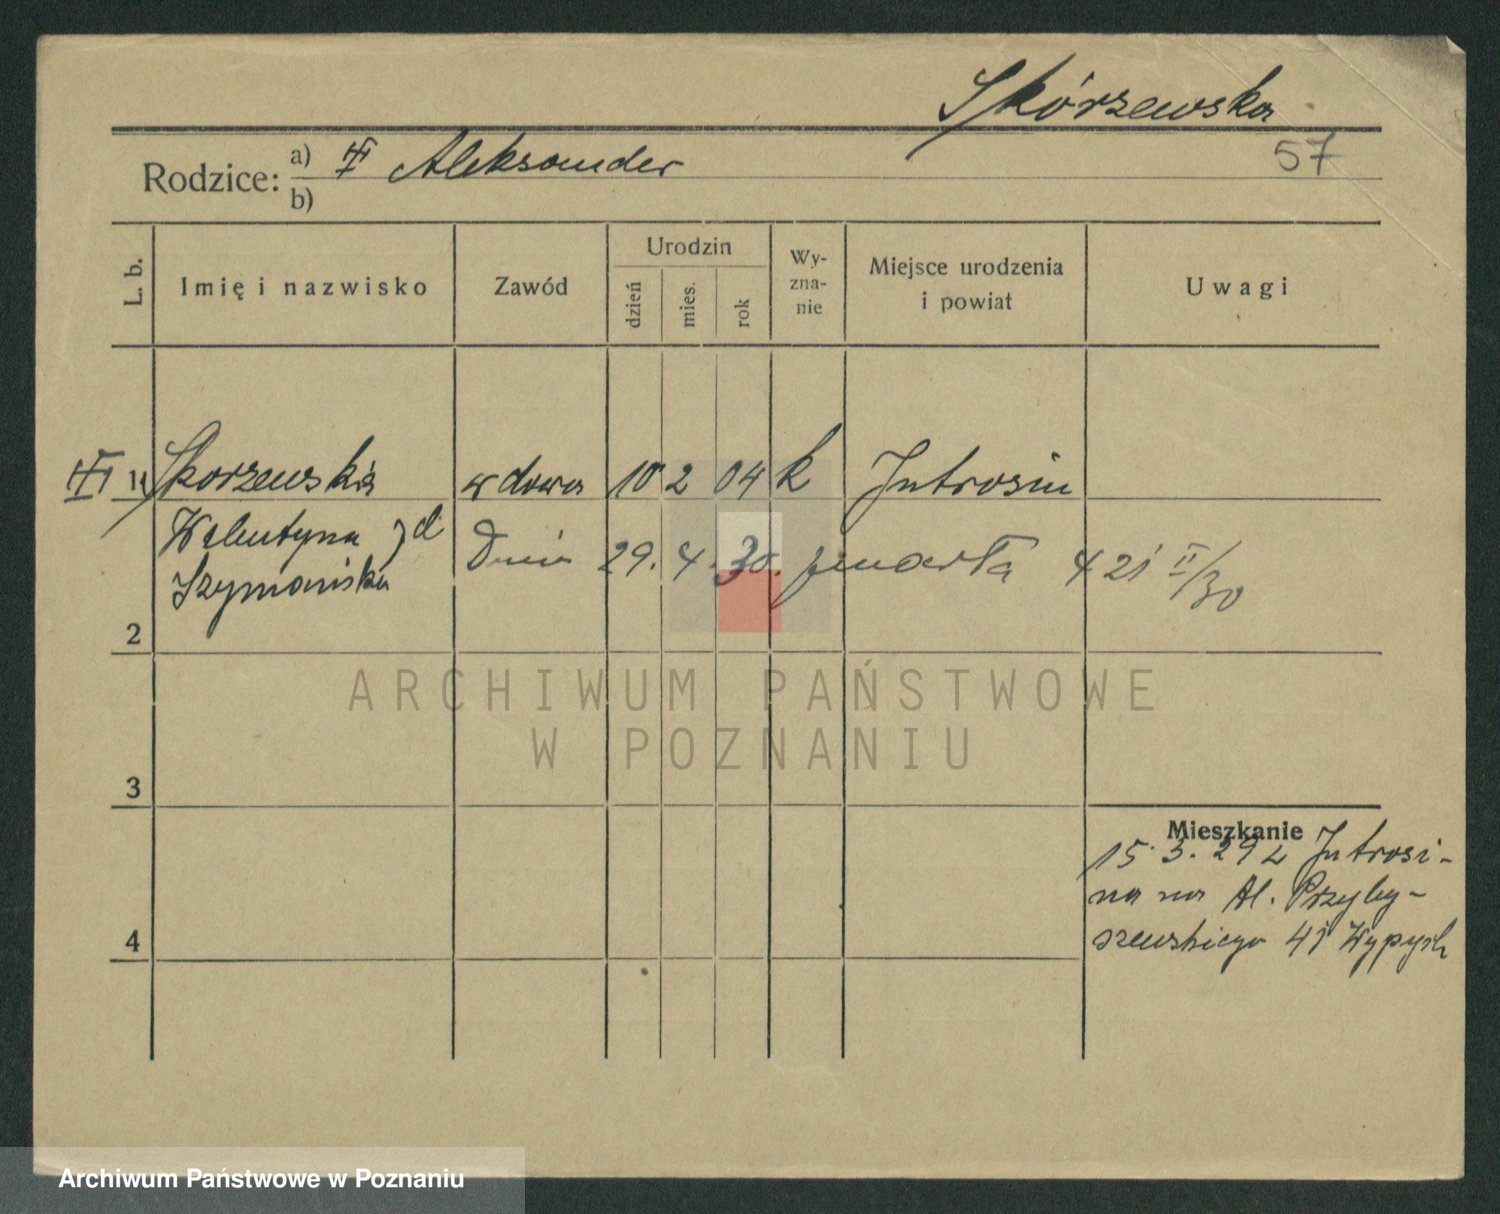 Skórzewska
57
Rodzice: a) Aleksander
b)
L. b. Imię i nazwisko Zawód Urodzin dzień mies. rok Wy-zna-nie Miejsce urodzenia i powiat Uwagi
1 Skorzewska wdowa 10 2 04 k Jutrosin
Walentyna zd
Szymańska
Dnia 29. 4. 30. zmarła 421 II/30
2
3
4
Mieszkanie
15. 3. 29 z Jutrosi-
na na Al. Przyby-
szewskiego 41 Wypych
ARCHIWUM PAŃSTWOWE
W POZNANIU
Archiwum Państwowe w Poznaniu